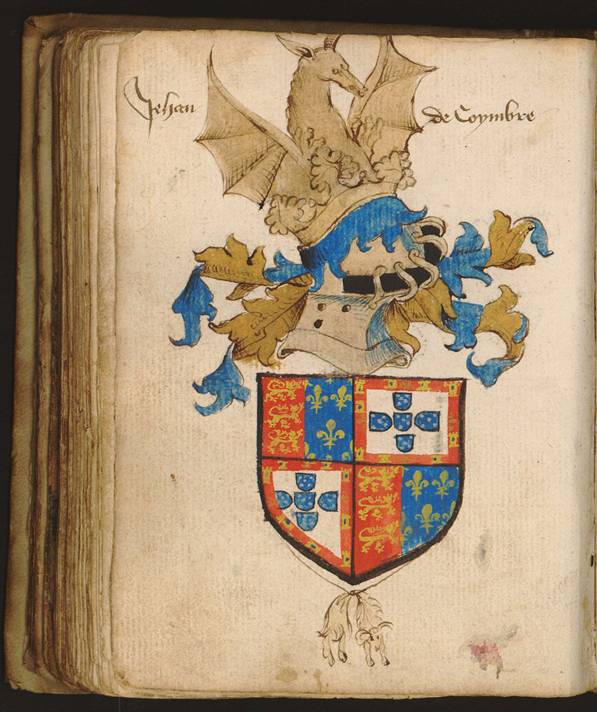 Jehan de Coymbre